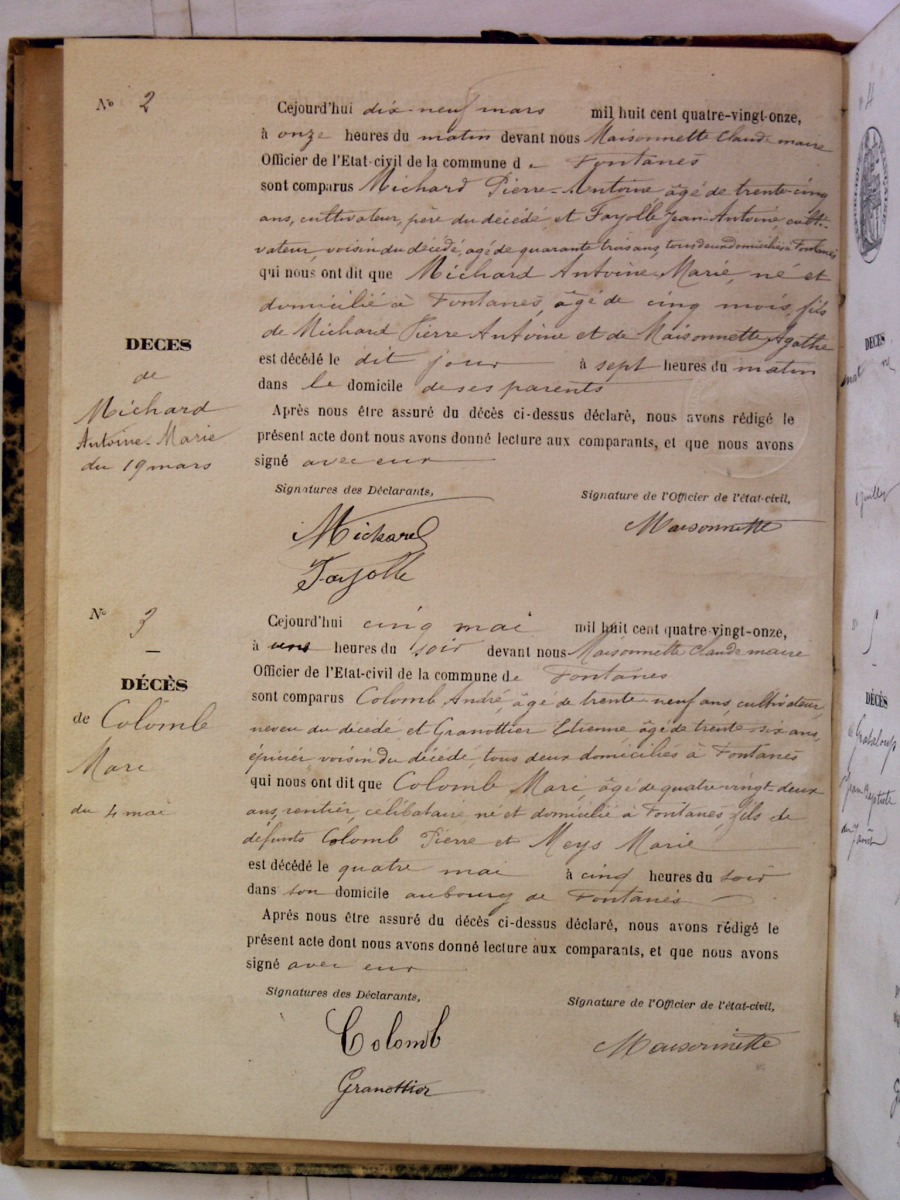 No 2
Cejourd'hui dix-neuf mars mil huit cent quatre-vingt-onze,
à onze heures du matin devant nous Maisonnette Claude maire
Officier de l'Etat-civil de la commune de Fontanès
sont comparus Michard Pierre-Antoine âgé de trente-cinq
ans, cultivateur, père du décédé, et Fayolle Jean-Antoine, culti-
vateur, voisin du décédé, agé de quarante trois ans, tous deux domiciliés à Fontanès
qui nous ont dit que Michard Antoine-Marie, né et
domicilié à Fontanès, âgé de cinq mois, fils
de Michard Pierre Antoine et de Maisonnette Agathe
est décédé le dit jour à sept heures du matin
dans le domicile de ses parents
Après nous être assuré du décès ci-dessus déclaré, nous avons rédigé le
présent acte dont nous avons donné lecture aux comparants, et que nous avons
signé avec eux
DECES
de
Michard
Antoine-Marie
du 19 mars
Signatures des Déclarants,
Signature de l'Officier de l'état-civil,
Michard
Maisonnette
Fayolle
No 3
Cejourd'hui cinq mai mil huit cent quatre-vingt-onze,
à heures du soir devant nous Maisonnette Claude maire
Officier de l'Etat-civil de la commune de Fontanès
sont comparus Colomb André, âgé de trente-neuf ans, cultivateur,
neveu du décédé, et Granottier Etienne âgé de trente-six ans,
épicier voisin du décédé, tous deux domiciliés à Fontanès
qui nous ont dit que Colomb Marc, âgé de quatre-vingt-deux
ans, rentier, célibataire, né et domicilié à Fontanès, fils de
défunts Colomb Pierre et Meys Marie
est décédé le quatre mai à cinq heures du soir
dans son domicile au bourg de Fontanès
Après nous être assuré du décès ci-dessus déclaré, nous avons rédigé le
présent acte dont nous avons donné lecture aux comparants, et que nous avons
signé avec eux
DÉCÈS
de Colomb
Marc
du 4 mai
Signatures des Déclarants,
Signature de l'Officier de l'état-civil,
Colomb
Maisonnette
Granottier
DÉCÈS
juillet
DÉCÈS
Jean Baptiste